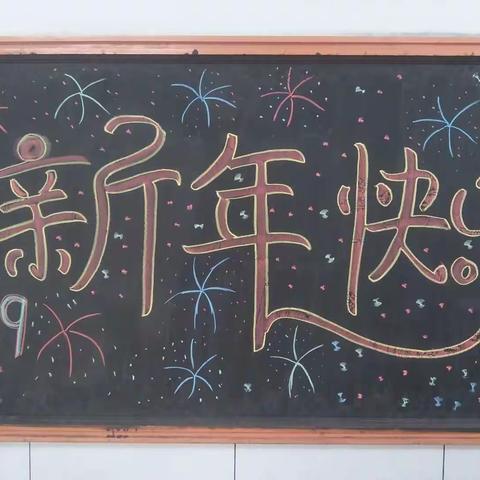 新年快
9